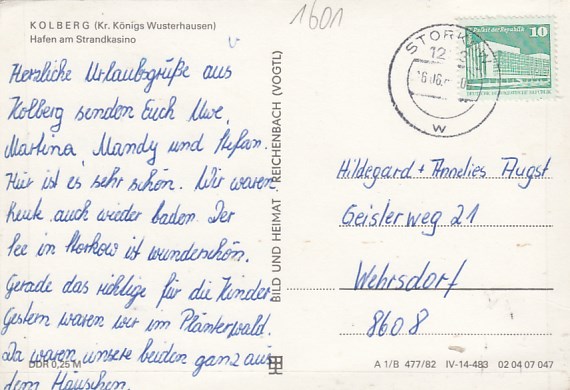 KOLBERG (Kr. Königs Wusterhausen)
Hafen am Strandkasino
1601
Herzliche Urlaubsgrüße aus
Kolberg senden Euch Uwe,
Martina, Mandy und Stefan.
Hier ist es sehr schön. Wir waren
heute auch wieder baden. Der
See in Storkow ist wunderschön.
Gerade das richtige für die Kinder
Gestern waren wir im Plänterwald.
Da waren unsere beiden ganz aus
dem Häuschen.
DDR 0,25 M
BILD UND HEIMAT REICHENBACH (VOGTL)
STORKOW
12
w
Palast der Republik
10
Hildegard + Annelies Augst
Geislerweg 21
Wehrsdorf
8608
A 1/B 477/82 IV-14-483 02 04 07 047